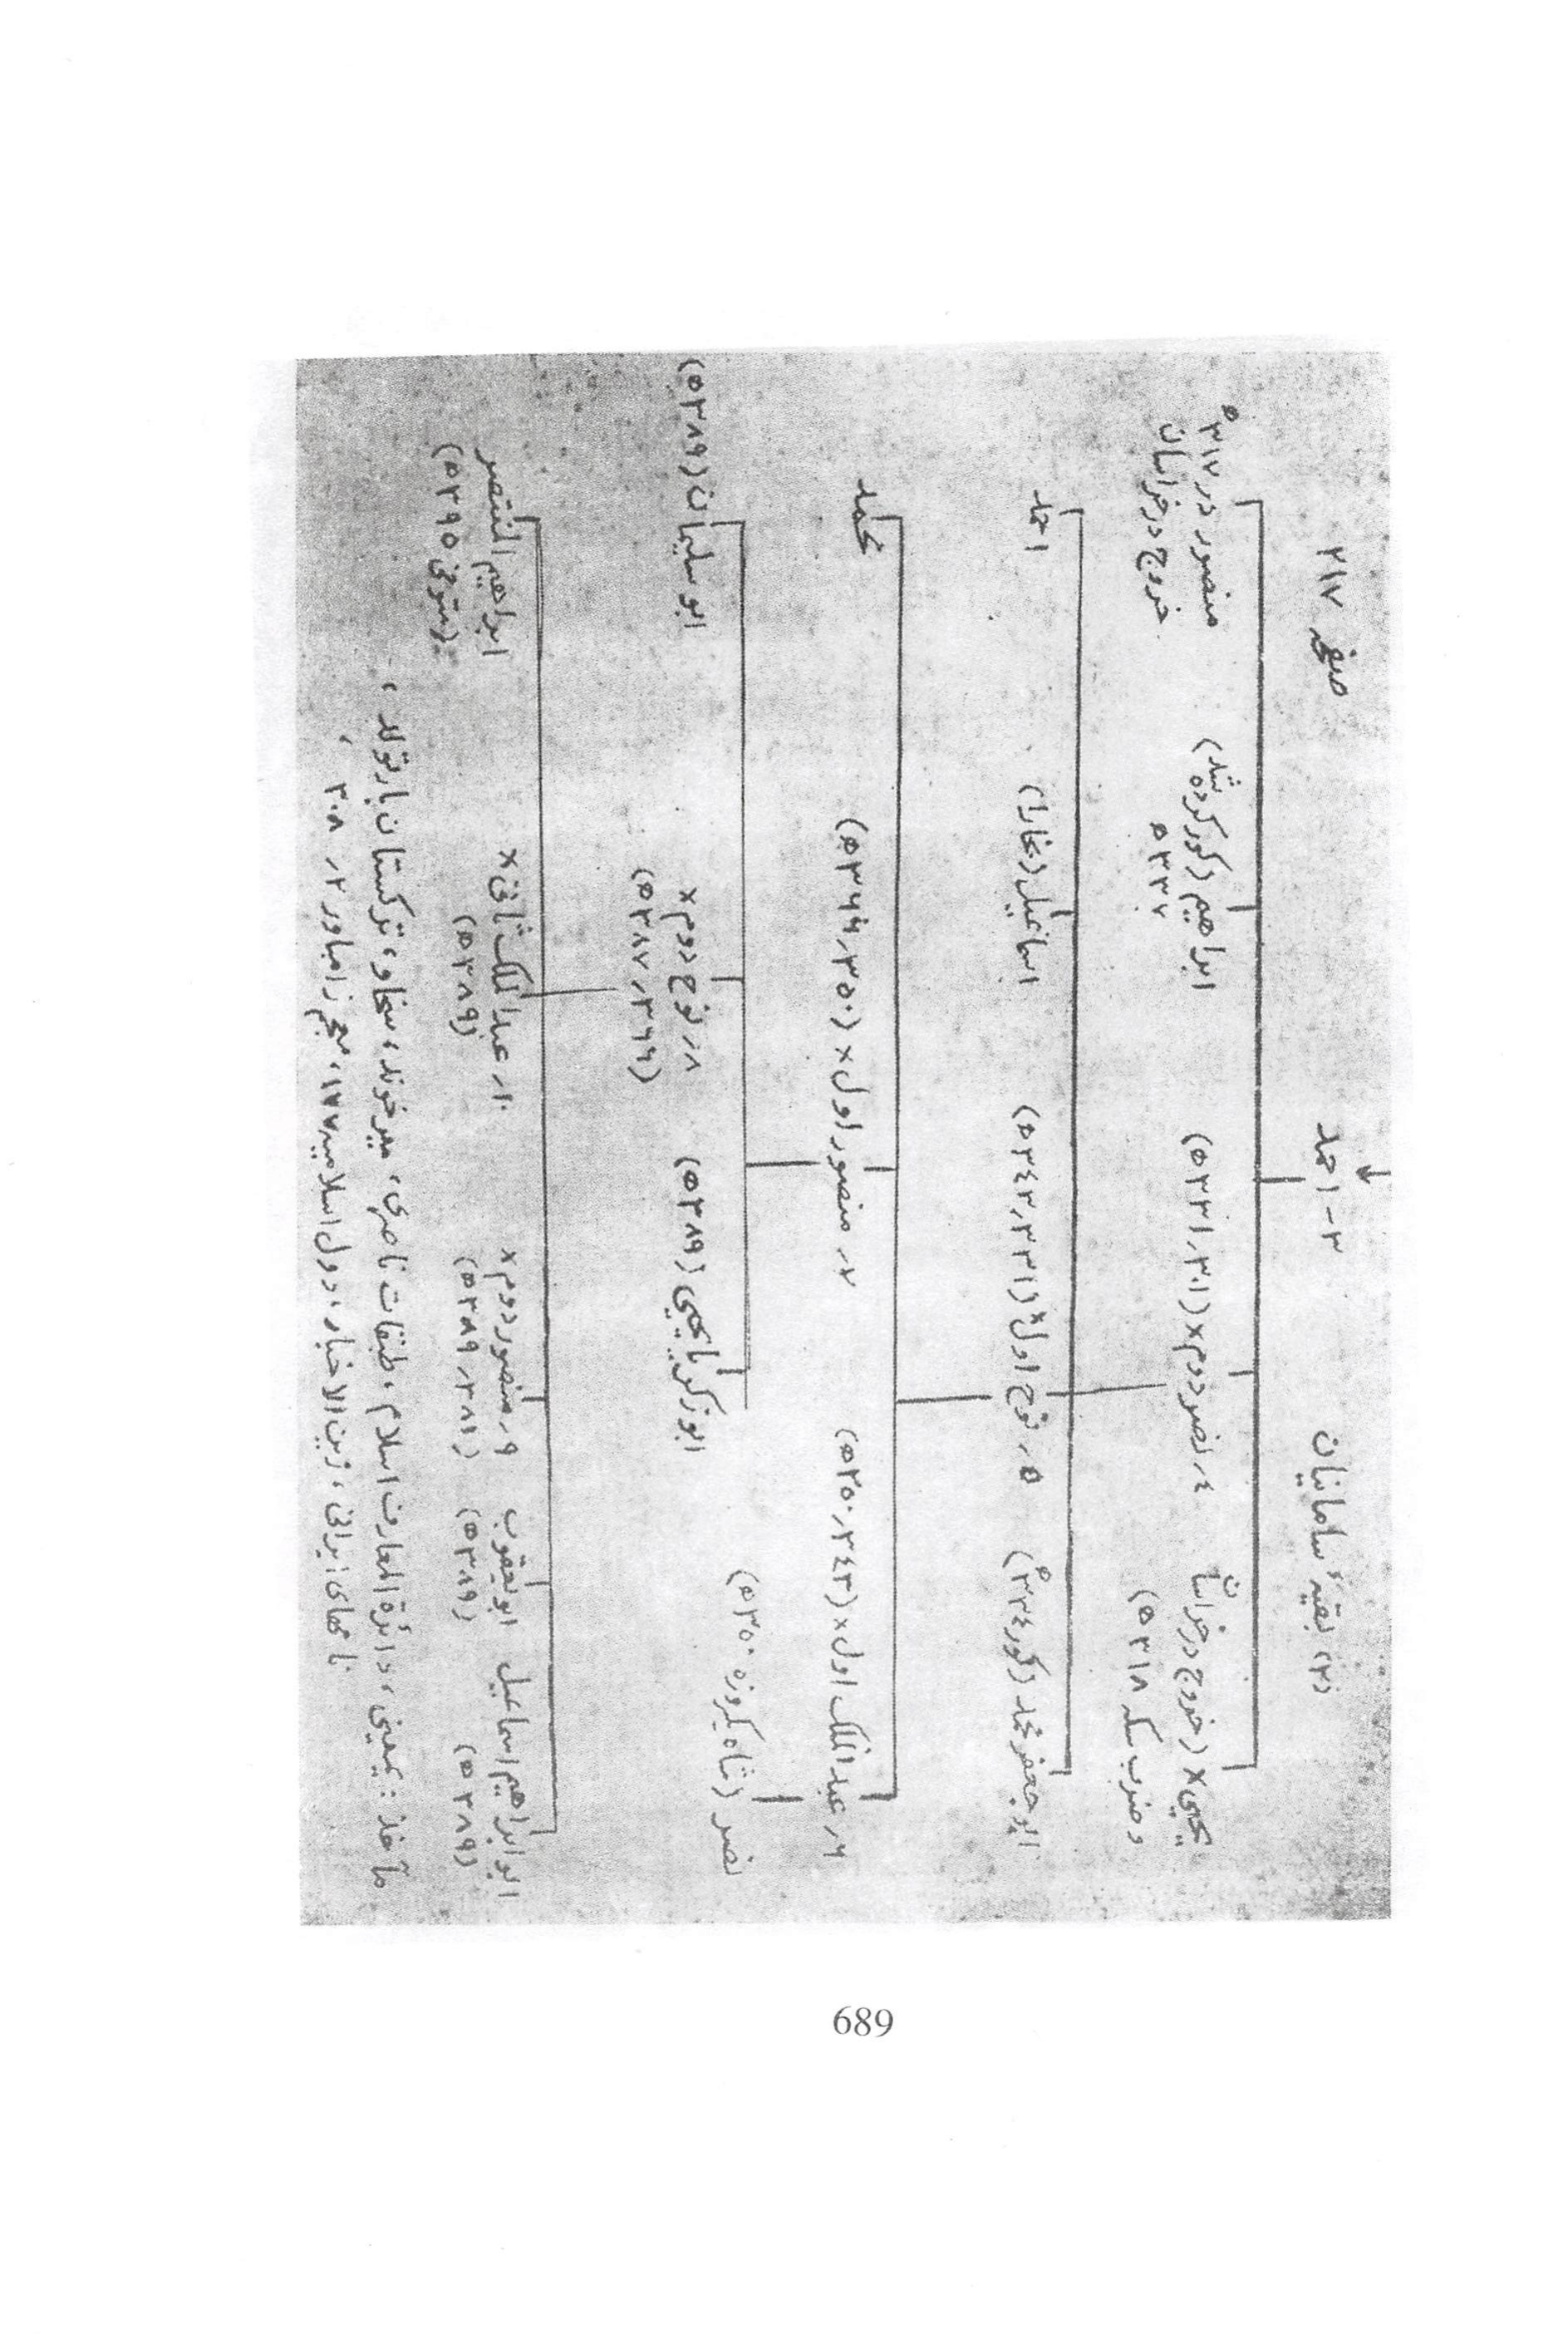 (۲) بقیهٔ سامانیان
۳- احمد
صفحه ۲۱۷
یحیی × (خروج در خراسان
و ضرب سکه ۳۱۸ ه)
۴ر نصر دوم × (۳۰۱ر۳۳۱ ه)
ابراهیم (کور کرده شد)
۳۳۷ ه
منصور در ۳۱۷ ه
خروج در خراسان
ابو جعفر محمد (کور ۳۳٤ ه)
۵ر نوح اول × (۳۳۱ر۳٤۳ ه)
اسماعیل (بخارا)
احمد
۶ر عبدالملک اول × (۳٤۳ر۳۵۰ ه)
۷ر منصور اول × (۳۵۰ر۳۶۶ ه)
محمد
نصر (شاه یکروزه ۳۵۰ ه)
ابو زکریا یحیی (۳۸۹ ه)
۸ر نوح دوم ×
(۳۶۶ر۳۸۷ ه)
ابو سلیمان (۳۸۹ ه)
ابو ابراهیم اسماعیل
(۳۸۹ ه)
ابو یعقوب
(۳۸۹ ه)
۹ر منصور دوم ×
(۳۸۷ر۳۸۹ ه)
۱۰ر عبدالملک ثانی ×
(۳۸۹ ه)
ابراهیم المنتصر
(متوفی ۳۹۵ ه)
مآخذ: یمینی، دائرة المعارف اسلام، طبقات ناصری، میرخوند، سخاو، ترکستان بارتولد،
نامهای ایرانی، زین الاخبار، دول اسلامیه ۱۷۷، معجم زامباور ۲ر ۳۰۸،
689